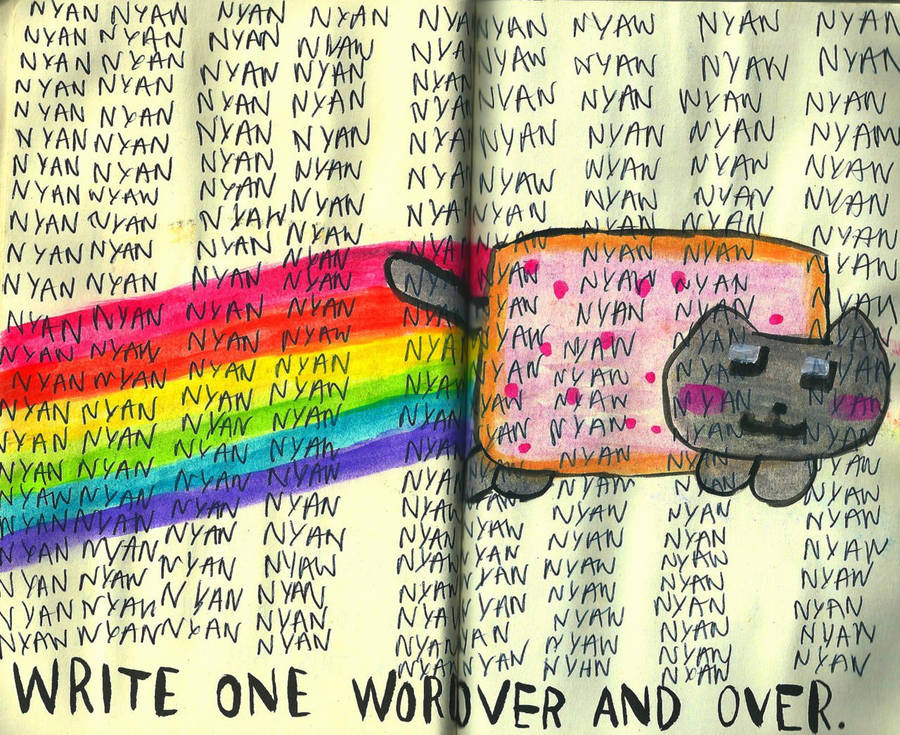 NYAN NYAN NYAN NYAN NYAN NYAN NYAN NYAN NYAN
NYAN NYAN NYAN NYAN NYAN NYAN NYAN NYAN NYAN
NYAN NYAN NYAN NYAN NYAN NYAN NYAN NYAN NYAN
NYAN NYAN NYAN NYAN NYAN NYAN NYAN NYAN NYAN
NYAN NYAN NYAN NYAN NYAN NYAN NYAN NYAN NYAN
NYAN NYAN NYAN NYAN NYAN NYAN NYAN NYAN NYAN
NYAN NYAN NYAN NYAN NYAN NYAN NYAN NYAN NYAN
NYAN NYAN NYAN NYAN NYAN NYAN NYAN NYAN NYAN
NYAN NYAN NYAN NYAN NYAN NYAN NYAN NYAN NYAN
NYAN NYAN NYAN NYAN NYAN NYAN NYAN NYAN NYAN
NYAN NYAN NYAN NYAN NYAN NYAN NYAN NYAN NYAN
NYAN NYAN NYAN NYAN NYAN NYAN NYAN NYAN NYAN
NYAN NYAN NYAN NYAN NYAN NYAN NYAN NYAN NYAN
NYAN NYAN NYAN NYAN NYAN NYAN NYAN NYAN NYAN
NYAN NYAN NYAN NYAN NYAN NYAN NYAN NYAN NYAN
NYAN NYAN NYAN NYAN NYAN NYAN NYAN NYAN NYAN
NYAN NYAN NYAN NYAN NYAN NYAN NYAN NYAN NYAN
NYAN NYAN NYAN NYAN NYAN NYAN NYAN NYAN NYAN
NYAN NYAN NYAN NYAN NYAN NYAN NYAN NYAN NYAN
NYAN NYAN NYAN NYAN NYAN NYAN NYAN NYAN NYAN
NYAN NYAN NYAN NYAN NYAN NYAN NYAN NYAN NYAN
NYAN NYAN NYAN NYAN NYAN NYAN NYAN NYAN NYAN
NYAN NYAN NYAN NYAN NYAN NYAN NYAN NYAN NYAN
NYAN NYAN NYAN NYAN
WRITE ONE WORD OVER AND OVER.